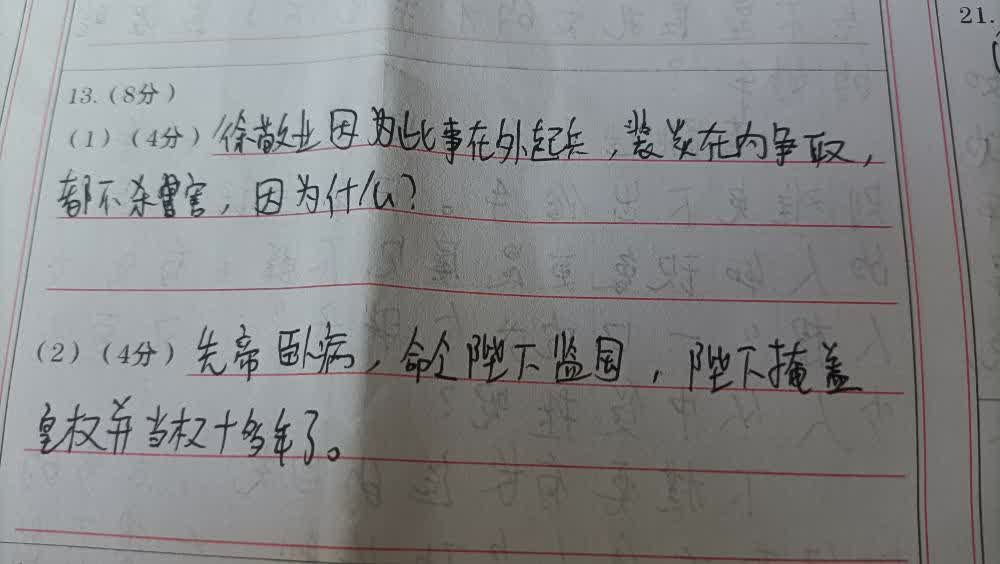 21.
13.(8分)
(1)(4分)徐敬业因为此事在外起兵,裴炎在内争取,
都不杀曹害,因为什么?
(2)(4分)先帝卧病,命令陛下监国,陛下掩盖
皇权并当权十多年了。